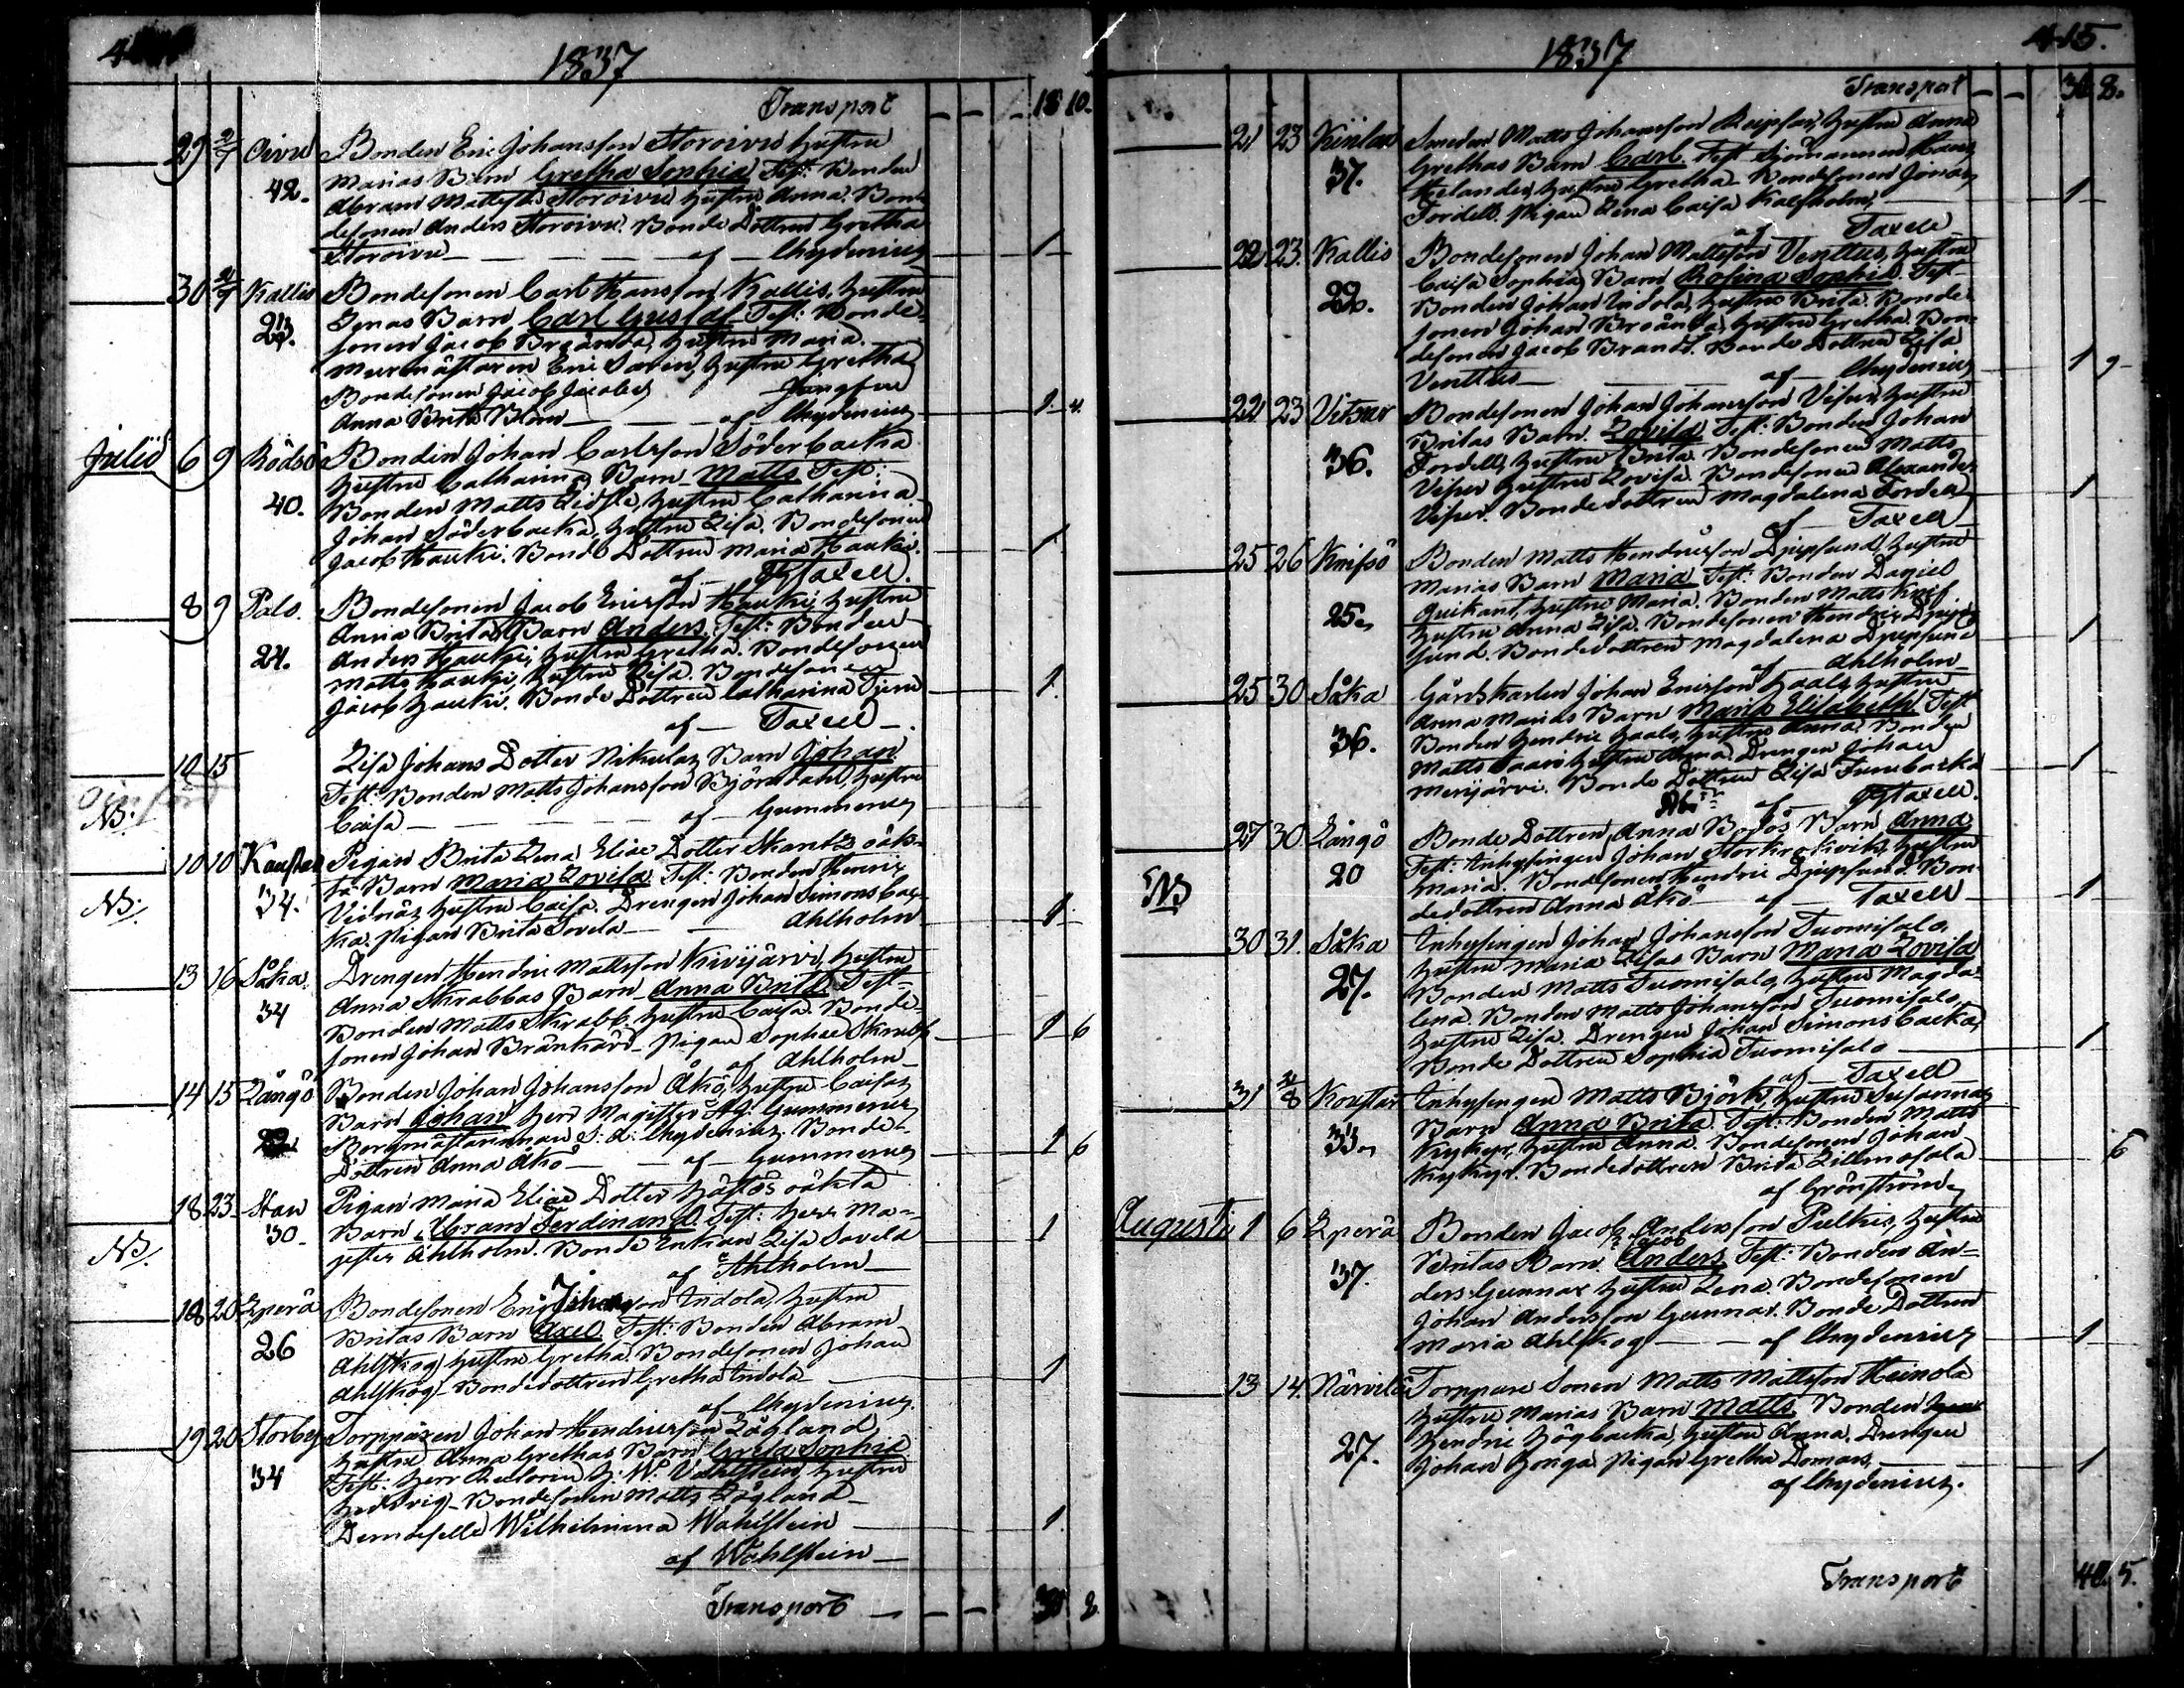 1837
Transport 18 10.
29 2/7 Oivu Bonden Eric Johansson Storoivu hustru
42. Marias Barn Gretha Sophia Test: Bonden
Abram Mattss: Storoivu hustru Anna. Bon-
desonen Anders Storoivu. Bonde Dottren Gretha
Storoivu — af Chydenius 1
30 2/7 Kallis Bondesonen Carl Hansson Kallis, hustru
Lenas Barn Carl Gustaf Test: Bonde-
sonen Jacob Broända, hustru Maria.
Murmästaren Eric Saren, hustru Gretha
Bondesonen Jacob Jacobs Jungfru
Anna Brita Blom — af Chydenius 1 4.
Julii 6 9 Rödsö Bonden Johan Carlsson Söderbacka
hustru Catharina Barn Matts Test:
40. Bonden Matts hustru Catharina
Johan Söderbacka, hustru Lisa. Bondesonen
Jacob Hauki. Bonde Dottren Maria Hauki. 1
af Taxell.
8 9 Palo. Bondesonen Jacob Ericsson Hauki, hustru
Anna Britas Barn Anders. Test: Bonden
24. Anders Hauki, hustru Gretha. Bondesonen
Matts Hauki, hustru Lisa. Bondesonen
Jacob Hauki. Bonde Dottren Catharina 1.
af — Taxell
10 15 Lisa Johans Dotter Nikulas Barn Johan
Test: Bonden Matts Johansson Björndahl, hustru
NB. Caisa — af Gummerus
10 10 Kaustar Pigan Brita Lena Eliae Dotter Skantz oäk-
ta Barn Maria Lovisa Test: Bonden Henric
34. Vidnäs hustru Caisa. Drengen Johan Simonsbac-
NB. ka. Pigan Brita Sovela — Ahlholm 1
13 16 Såka. Drengen Hendric Mattsson Kivijärvi, hustru
34 Anna Skrabbas Barn Anna Brita Test:
Bonden Matts Skrabb, hustru Caisa. Bonde-
sonen Johan Bränkärr. Pigan Sophia Skrabb 1 6
af Ahlholm
14 15 Långö Bonden Johan Johansson Åkö, hustru Caisas
Barn Johan Herr Magister A.G: Gummerus
Borgmästarinnan S: A: Chydenius. Bonde-
Dottren Anna Åkö — af — Gummerus 1 6
18 23 Staw Pigan Maria Eliae Dotter Hästös oäkta
30. Barn Abram Ferdinand Test: Herr Ma-
NB. gister Ahlholm. Bonde Enkan Lisa Savela 1
af Ahlholm
18 20 Yperä Bondesonen Eric Johansson Indola, hustru
26 Britas Barn Axel Test: Bonden Abram
Ahlskog hustru Gretha. Bondesonen Johan
Ahlskog. Bondedottren Gretha Indola 1
af Chydenius.
19 20 Storby Torpparen Johan Hendricsson Lågland
34 hustru Anna Grethas Barn Greta Sophia
Test: Herr Rectorn H: W: Wahlstein, hustru
Hedvig. Bondesonen Matts Lågland
Demoiselle Wilhelmina Wahlstein 1.
af Wahlstein
Transport 30 2.
1837 415.
Transport 30 2.
21 23 Smeden Matts Johansson hustru Anna
37. Grethas Barn Carl. Test Sjömannen
Helander, hustru Gretha. Bondesonen Jonas
Fordell. Pigan Lena Caisa Kalfholm, 1
af Taxell
22 23. Kallis Bondesonen Johan Mattsson Venttus, hustru
Caisa Sophias Barn Rosina Sophia. Test
Bonden Johan Indola, hustru Brita. Bonde-
sonen Johan Broända, hustru Gretha. Bon-
desonen Jacob Brandt. Bonde Dottren Lisa
Venttus — af — Chydenius 1 9
22 23 Vitsar Bondesonen Johan Johansson Visur, hustru
Britas Barn Lovisa Test: Bonden Johan
36. Fordell, hustru Brita. Bondesonen Matts
Visur hustru Lovisa. Bondesonen Alexander
Visur. Bondedottren Magdalena Fordell 1
af — Taxell
25 26 Knifsö Bonden Matts Hendricsson Djupsund, hustru
Marias Barn Maria Test: Bonden Daniel
25. Quikant, hustru Maria. Bonden Matts Knif.
hustru Anna Lisa. Bondesonen Hendric Djup-
sund. Bondedottren Magdalena Djupsund 1
af Ahlholm
25 30 Såka Gårdskarlen Johan Ericsson Haals, hustru
Anna Marias Barn Maria Elisabeth Test
36. Bonden Hendric Haals, hustru Anna Bonden
Matts Saari hustru Anna. Drengen Johan
Merijärvi. Bonde Dottren Lisa 1
af Taxell.
27 30. Långö Bonde Dottren Anna Barn Anna
20 Test: Inhysingen Johan Storkrokvik, hustru
NB Maria. Bondesonen Hendric Djupsund. Bon-
dedottren Anna Åkö — af — Taxell 1
30 31. Såka Inhysingen Johan Johansson Tuomisalo,
27. hustru Maria Lisas Barn Maria Lovisa
Bonden Matts Tuomisalo, hustru Magda-
lena. Bonden Matts Johansson Tuomisalo,
hustru Lisa. Drengen Johan Simonsbacka,
Bonde Dottren Sophia Tuomisalo 1
af — Taxell
31 2/8 Koustar Inhysingen Matts Björk, hustru Susannas
33. Barn Anna Brita. Test: Bonden Matts
Kykyr, hustru Anna. Bondesonen Johan
Kykyr. Bondedottren Brita 6
af Grönstrand
Augusti 1 6 Yperä Bonden Jacob Andersson Pulkis, hustru
37. Britas Barn Anders Test: Bonden An-
ders Gunnar hustru Lena. Bondesonen
Johan Andersson Gunnar. Bonde Dottren
Maria Ahlskog — af Chydenius 1
13 14. Närvilä Torppare Sonen Matts Mattsson Heinola
hustru Marias Barn Matts Bonden
27. Hendric Högbacka, hustru Anna. Drengen
Johan Honga Pigan Gretha Domars, 1
af Chydenius.
Transport 40. 5.